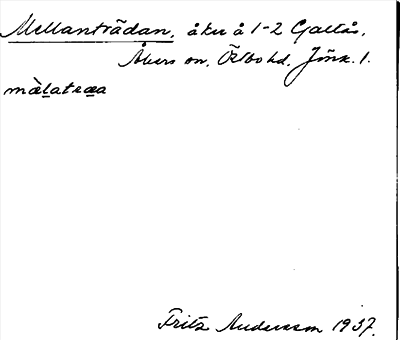 Mellanträdan, åker å 1-2 Galtås,
Åkers sn, Östbo hd, Jönk. l.
màlatræa
Fritz Andersson 1937.